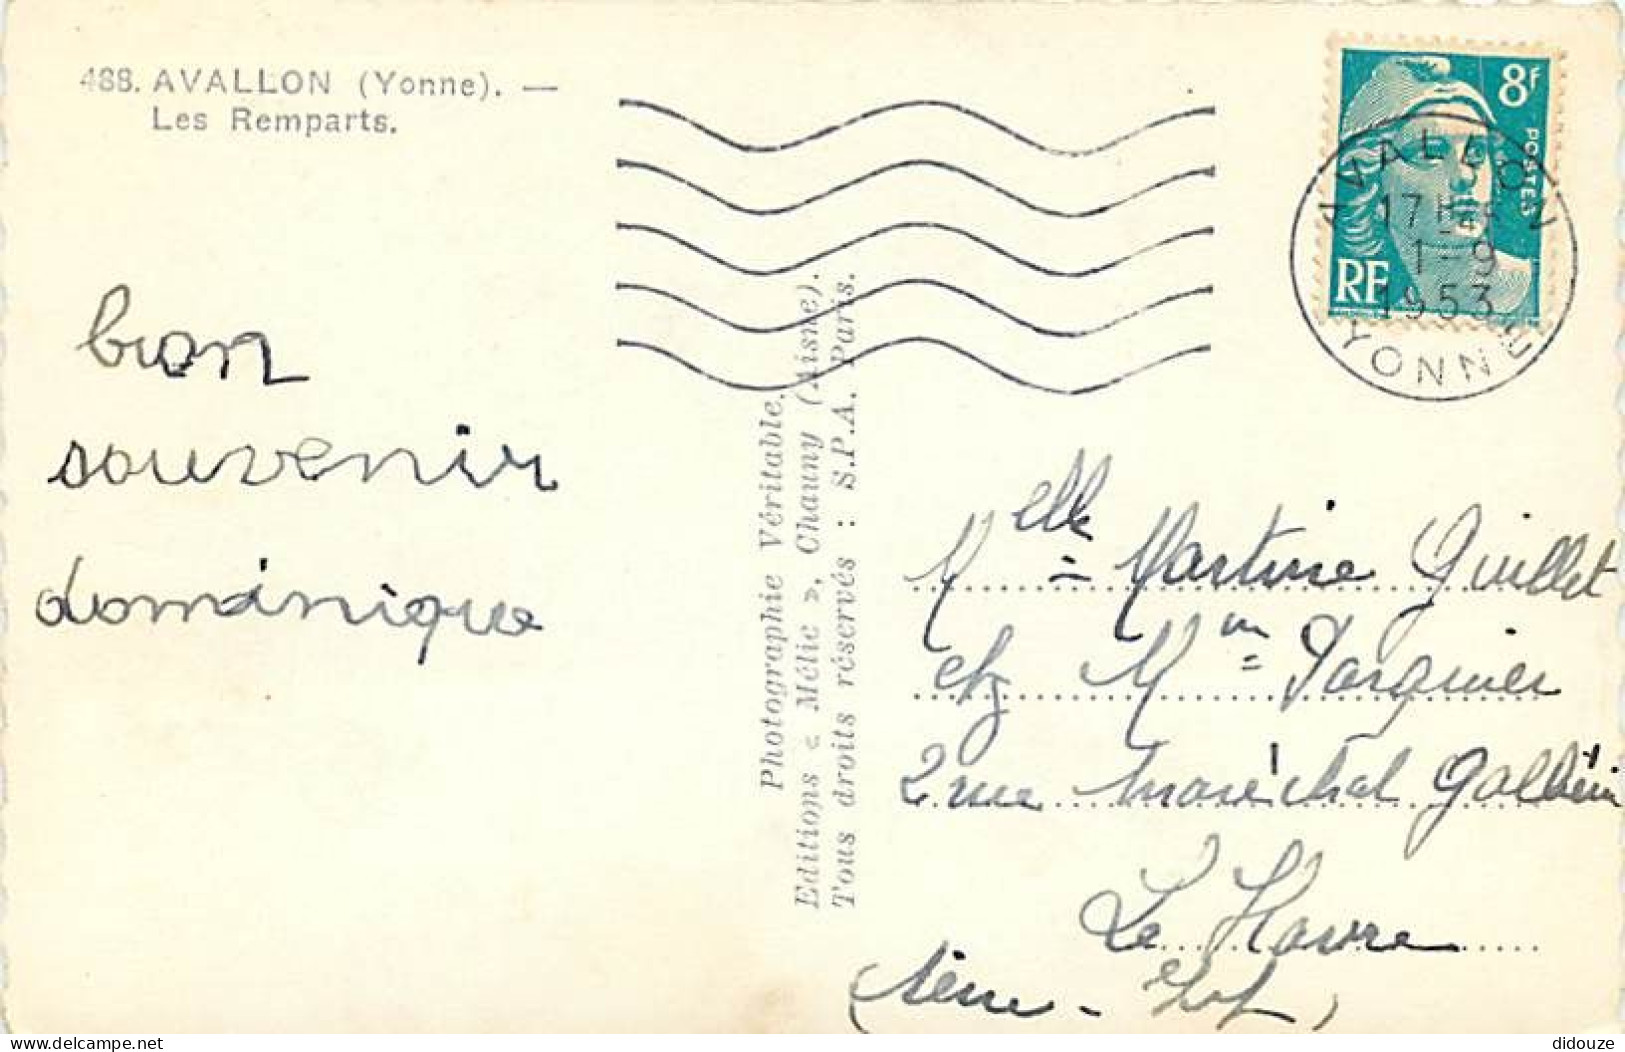 488. AVALLON (Yonne). —
Les Remparts.
bon
souvenir
dominique
Photographie Véritable.
Editions « Mélie », Chauny (Aisne).
Tous droits réservés : S.P.A. Paris.
8F
POSTES
RF
AVALLON
17H
1-9
1953
YONNE
Melle Martine Guillet
chez Mm Parquier
2 rue maréchal Galliéni
Le Havre
(Seine-Inf)
didouze